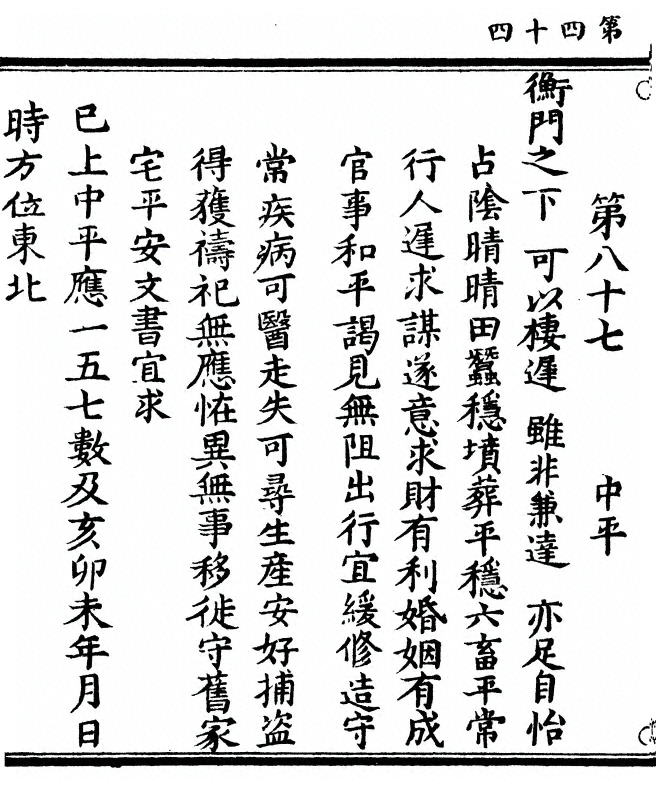 第四十四
第八十七 中平
衡門之下 可以棲遲 雖非兼達 亦足自怡
占陰晴晴田蠶穩墳葬平穩六畜平常
行人遲求謀遂意求財有利婚姻有成
官事和平謁見無阻出行宜緩修造守
常疾病可醫走失可尋生產安好捕盜
得獲禱祀無應恠異無事移徙守舊家
宅平安文書宜求
已上中平應一五七數及亥卯未年月日
時方位東北